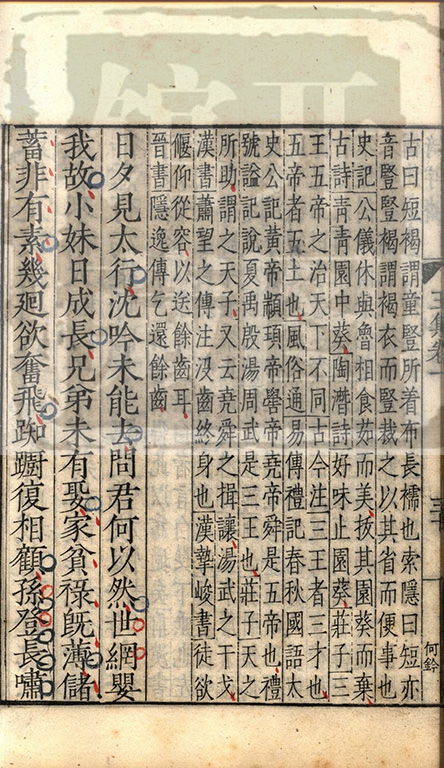 古曰短褐謂童豎所着布長襦也索隱曰短亦
音豎豎褐謂褐衣而豎裁之以其省而便事也
史記公儀休與魯相食茹而美拔其園葵而棄
古詩青青園中葵陶潛詩好味止園葵莊子三
王五帝之治天下不同古今注三王者三才也
五帝者五土也風俗通易傳禮記春秋國語太
史公記黃帝顓頊帝嚳帝堯帝舜是五帝也禮
號謚記說夏禹殷湯周武是三王也莊子天之
所助謂之天子又云堯舜之揖讓湯武之干戈
漢書蕭望之傳注没齒終身也漢摯峻書徒欲
偃仰從容以送餘齒耳
晉書隱逸傳乞還餘齒
日夕見太行沈吟未能去問君何以然世網嬰
我故小妹日成長兄弟未有娶家貧祿旣薄儲
蓄非有素幾迴欲奮飛踟躕復相顧孫登長嘯